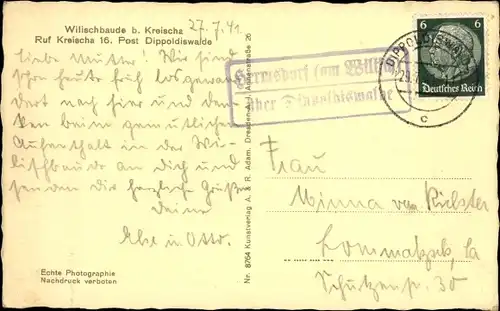 Wilischbaude b. Kreischa
Ruf Kreischa 16. Post Dippoldiswalde
27.7.41
Liebe Mutter! Wir sind
schon heute früh losgewan
dert nach hier und den-
ken beim gemütlichen
Aufenthalt in der Wi-
lischbaude an Dich und
senden Dir herzliche Grüße
Deine
u. Otto.
Echte Photographie
Nachdruck verboten
Nr. 8764 Kunstverlag A. & R. Adam, Dresden-A. 1, Amalienstraße 20
Hermsdorf (am Wilisch)
über Dippoldiswalde
DIPPOLDISWALDE
c
6 6
Deutsches Reich
Frau
Minna
Lommatzsch, Sa
Schützenstr. 30